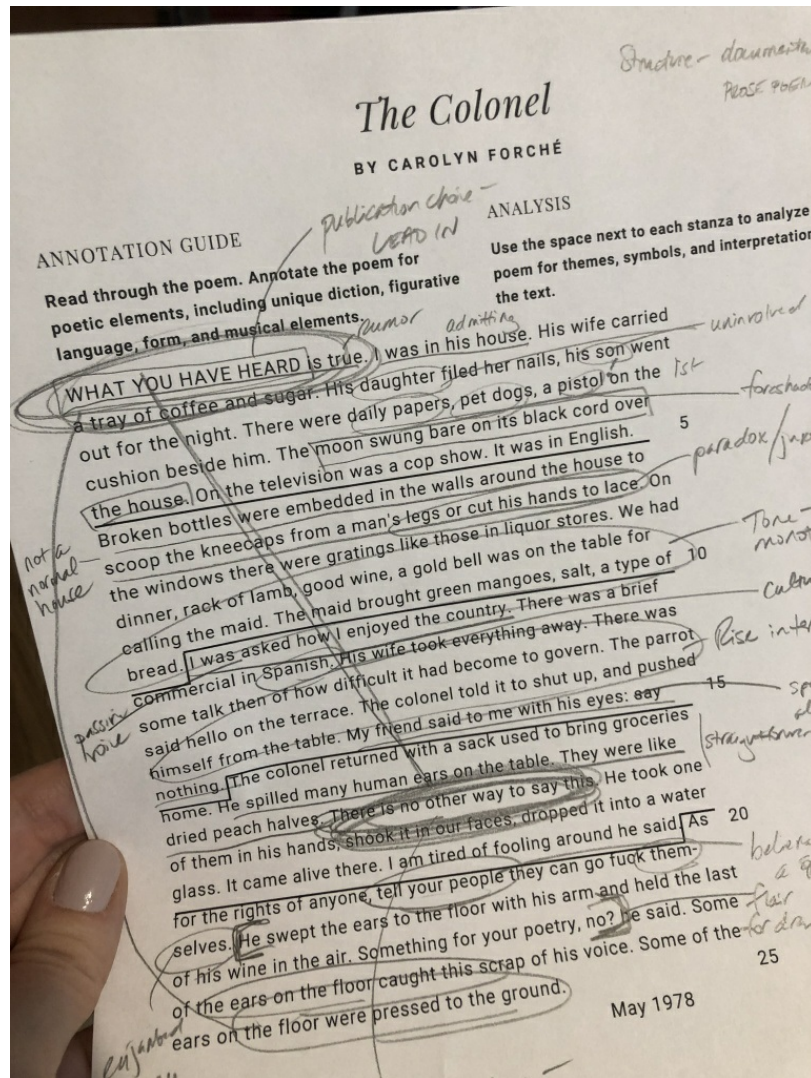 Structure - 
PROSE POEM
The Colonel
BY CAROLYN FORCHÉ
publication choice -
LEAD IN
ANNOTATION GUIDE
Read through the poem. Annotate the poem for
poetic elements, including unique diction, figurative
language, form, and musical elements.
ANALYSIS
Use the space next to each stanza to analyze
poem for themes, symbols, and interpretation
the text.
rumor
admitting
WHAT YOU HAVE HEARD is true. I was in his house. His wife carried
uninvolved
a tray of coffee and sugar. His daughter filed her nails, his son went
1st
out for the night. There were daily papers, pet dogs, a pistol on the
cushion beside him. The moon swung bare on its black cord over
5
the house. On the television was a cop show. It was in English.
paradox/
Broken bottles were embedded in the walls around the house to
scoop the kneecaps from a man's legs or cut his hands to lace. On
not a
normal
house
the windows there were gratings like those in liquor stores. We had
Tone -
dinner, rack of lamb, good wine, a gold bell was on the table for
calling the maid. The maid brought green mangoes, salt, a type of
10
bread. I was asked how I enjoyed the country. There was a brief
commercial in Spanish. His wife took everything away. There was
Rise
passive
voice
some talk then of how difficult it had become to govern. The parrot
said hello on the terrace. The colonel told it to shut up, and pushed
himself from the table. My friend said to me with his eyes: say
15
nothing. The colonel returned with a sack used to bring groceries
home. He spilled many human ears on the table. They were like
dried peach halves. There is no other way to say this. He took one
of them in his hands, shook it in our faces, dropped it into a water
glass. It came alive there. I am tired of fooling around he said. As
20
for the rights of anyone, tell your people they can go fuck them-
selves. He swept the ears to the floor with his arm and held the last
flair
of his wine in the air. Something for your poetry, no? he said. Some
for
of the ears on the floor caught this scrap of his voice. Some of the
25
ears on the floor were pressed to the ground.
May 1978